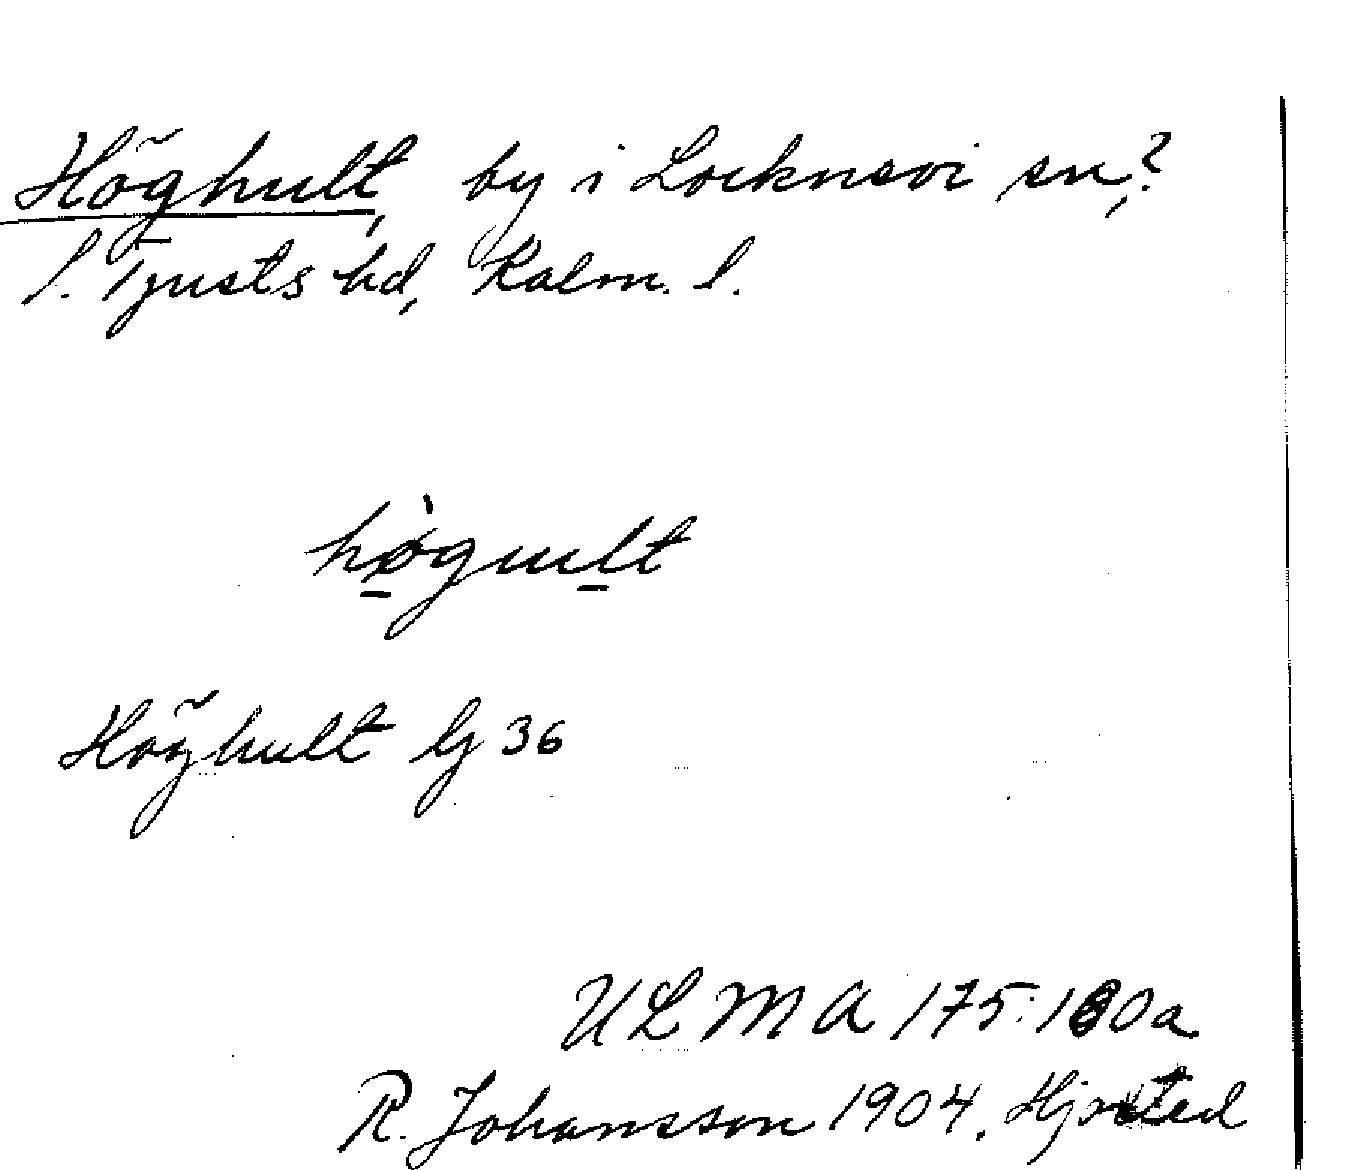 Höghult, by i Locknevi sn,?
S. Tjusts hd, Kalm. l.
hø̀gult
Höghult Gj 36
ULMA 175:180a
R. Johansson 1904, Hjorted